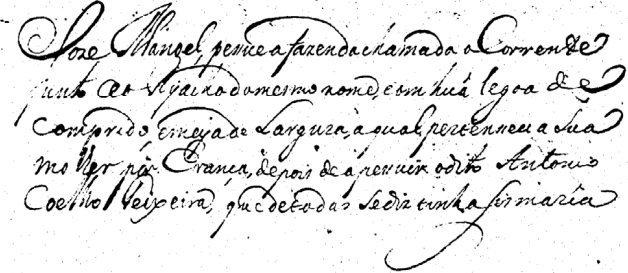 Joze Manoel, pesue a fazenda chamada o Corrente
junto ao Ryacho do mesmo nome, com huã legoa de
Comprido, e meya de Largura, a qual pertenceu a Suã
molher por Erança, depois de a pesuir o dito Antonio
Coelho Teixeira, que de todas se diz tinha sismaria